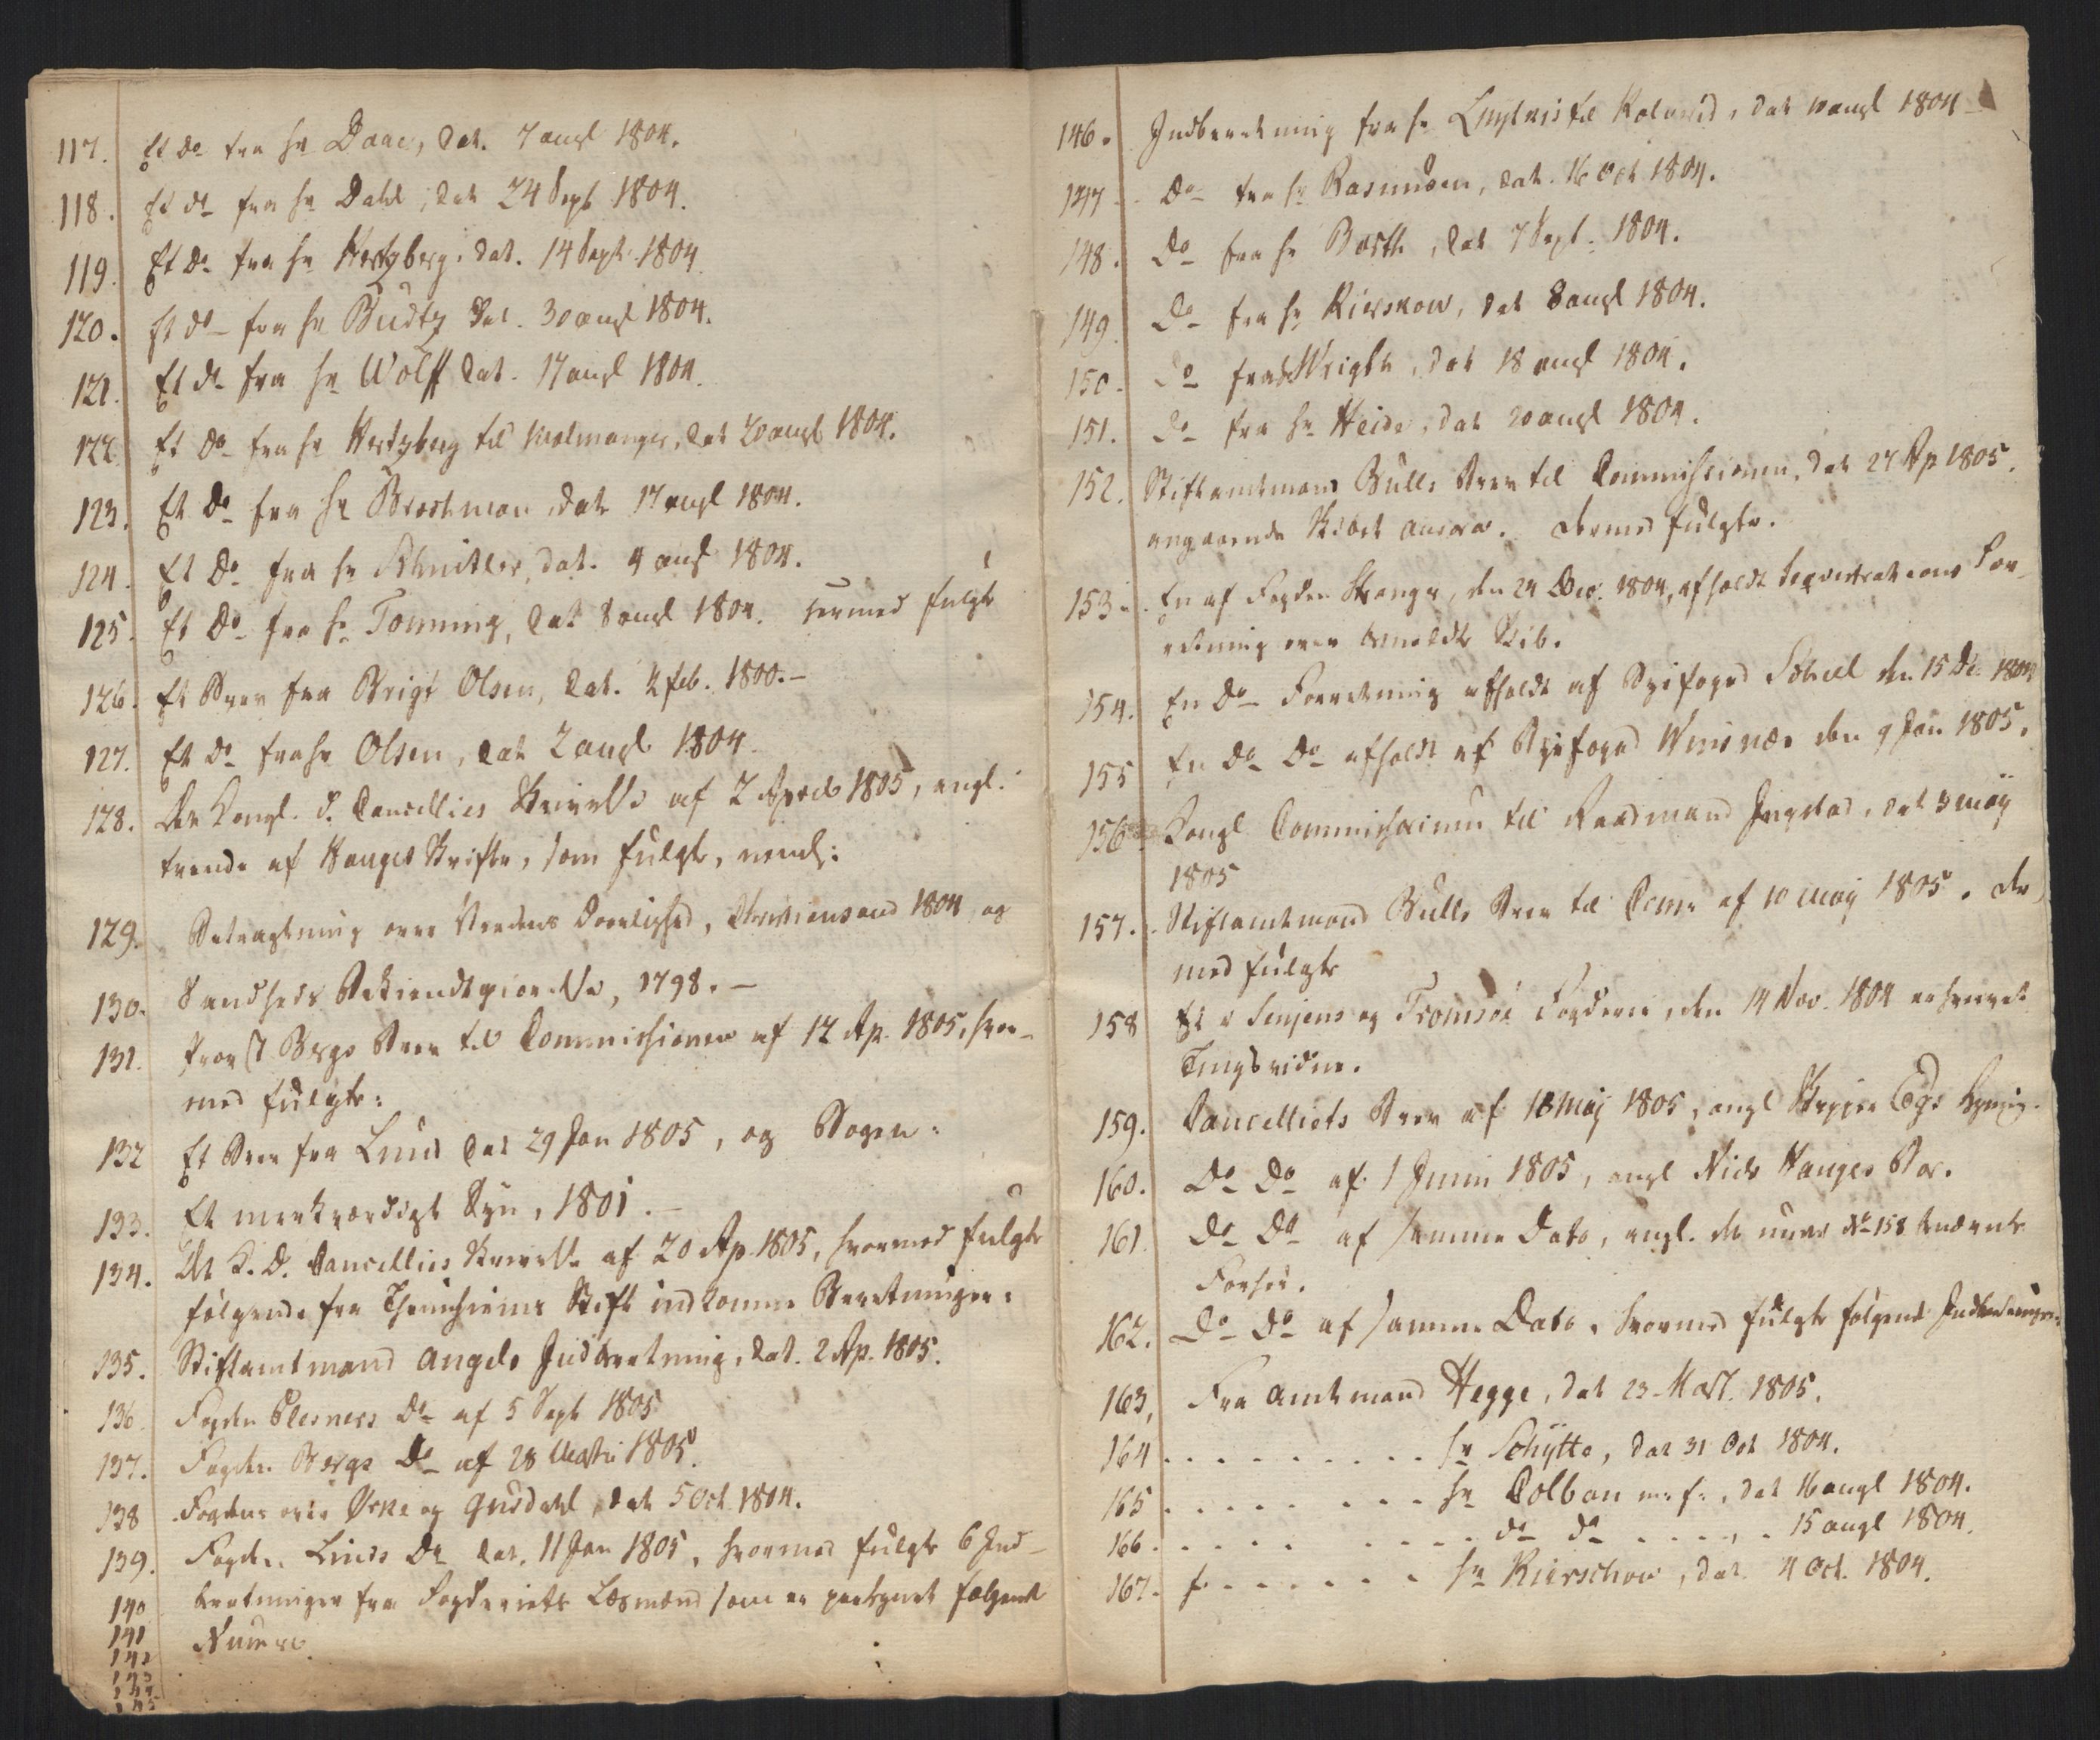 117. Et Do fra Hr Daae, dat. 7 augl 1804.
118. Et Do fra Hr Dahl, dat 24 Sept 1804.
119. Et Do fra Hr Hertzberg, dat. 14 Sept. 1804
120. Et Do fra Hr Budtz dat. 30 augl 1804.
121. Et Do fra Hr Wolff dat. 17 augl 1804.
122. Et Do fra Hr Hertzberg til dat 20 augl 1804.
123. Et Do fra Hr dat 17 augl 1804.
124. Et Do fra Hr Schnitler, dat. 4 aug 1804.
125. Et Do fra Hr Tonning, dat 8 augl 1804. hermed fulgte
126. Et Brev fra Brigt Olsen, dat. feb. 1800.–
127. Et Do fra Hr Olsen, dat 2 augl 1804.
128. Det Kongl. d. Cancellies Skrivelse af 2 April 1805, angl.
trende af Hauges Skrifter, som fulgte, neml:
129. Betragtning over Verdens Daarlighed, Christiansand 1804, og
130. Sandheds Bekiendtgiørelse, 1798.–
131. Provst Bergs Brev til Commissionen af 12 Ap. 1805, hvor-
med fulgte:
132 Et Brev fra Lund dat 29 Jan 1805, og Bogen:
133. Et merkværdigt Syn, 1801.–
134. Det K. D. Cancellies Skrivelse af 20 Ap. 1805, hvormed fulgte
følgende fra Thrunhiems Stift indkomne Beretninger:
135. Stiftamtmand Angels Indberetning, dat. 2 Ap. 1805.
136 Fogden Do af 5 Sept 1805
137. Fogden Bergs Do af 28 Martii 1805.
138 Fogdens over Ørke og Guldahl, dat 5 Oct. 1804.
139. Fogden Linds Do dat. 11 Jan 1805, hvormed fulgte 6 Ind-
140 beretninger fra Fogderiets som er paategnet følgende
141 Numre.
142
143
144
145
146. Indberetning fra Hr til dat augl 1804
147 Do fra Hr Rasmusen, dat. 16 Oct 1804.
148. Do fra Hr Barth, dat 7 Sept. 1804.
149. Do fra Hr Kierskow, dat 8 augl 1804.
150. Do fra Hr Wright, dat 18 augl 1804.
151. Do fra Hr Heide, dat 20 augl 1804.
152. Stiftamtmand Bulls Brev til Commissionen, dat 27 Ap 1805.
angaaende Skibet Aurora. Dermed fulgte.
153. En af Fogden den 24 Dec. 1804, afholdt Seqvestrations For-
retning over Skib.
154. En Do Forretning afholdt af Byefoged den 15 De. 1804
155 En Do Do afholdt af Byefoged Winsnæs den 9 Jan 1805.
156 Kongl Commissorium til Raadmand Ingstad, dat 3 May
1805
157. Stiftamtmand Bulls Brev til Comm af 10 May 1805. Der
med fulgte
158 Et i Senjens og Tromsöe Fogderie, den 14 Nov. 1804 erhvervet
Tingsvidne.
159. Cancelliets Brev af 18 May 1805, angl
160. Do Do af 1 Junii 1805, angl Niels Hauges
161 Do Do af samme Dato, angl. de under No 158 nævnte
Forhør.
162. Do Do af samme Dato, hvormed fulgte følgende Indberetninger:
163, Fra Amtmand Hegge, dat 23 Mart. 1805.
164 . . . . . . . . . Hr Schytte, dat 31 Oct 1804.
165 . . . . . . . . Hr Colban dat 16 augl 1804.
166. . . . . . . . . do do . . . . . 15 augl 1804.
167. . . . . . . Hr Kierschow, dat. 4 Oct. 1804.